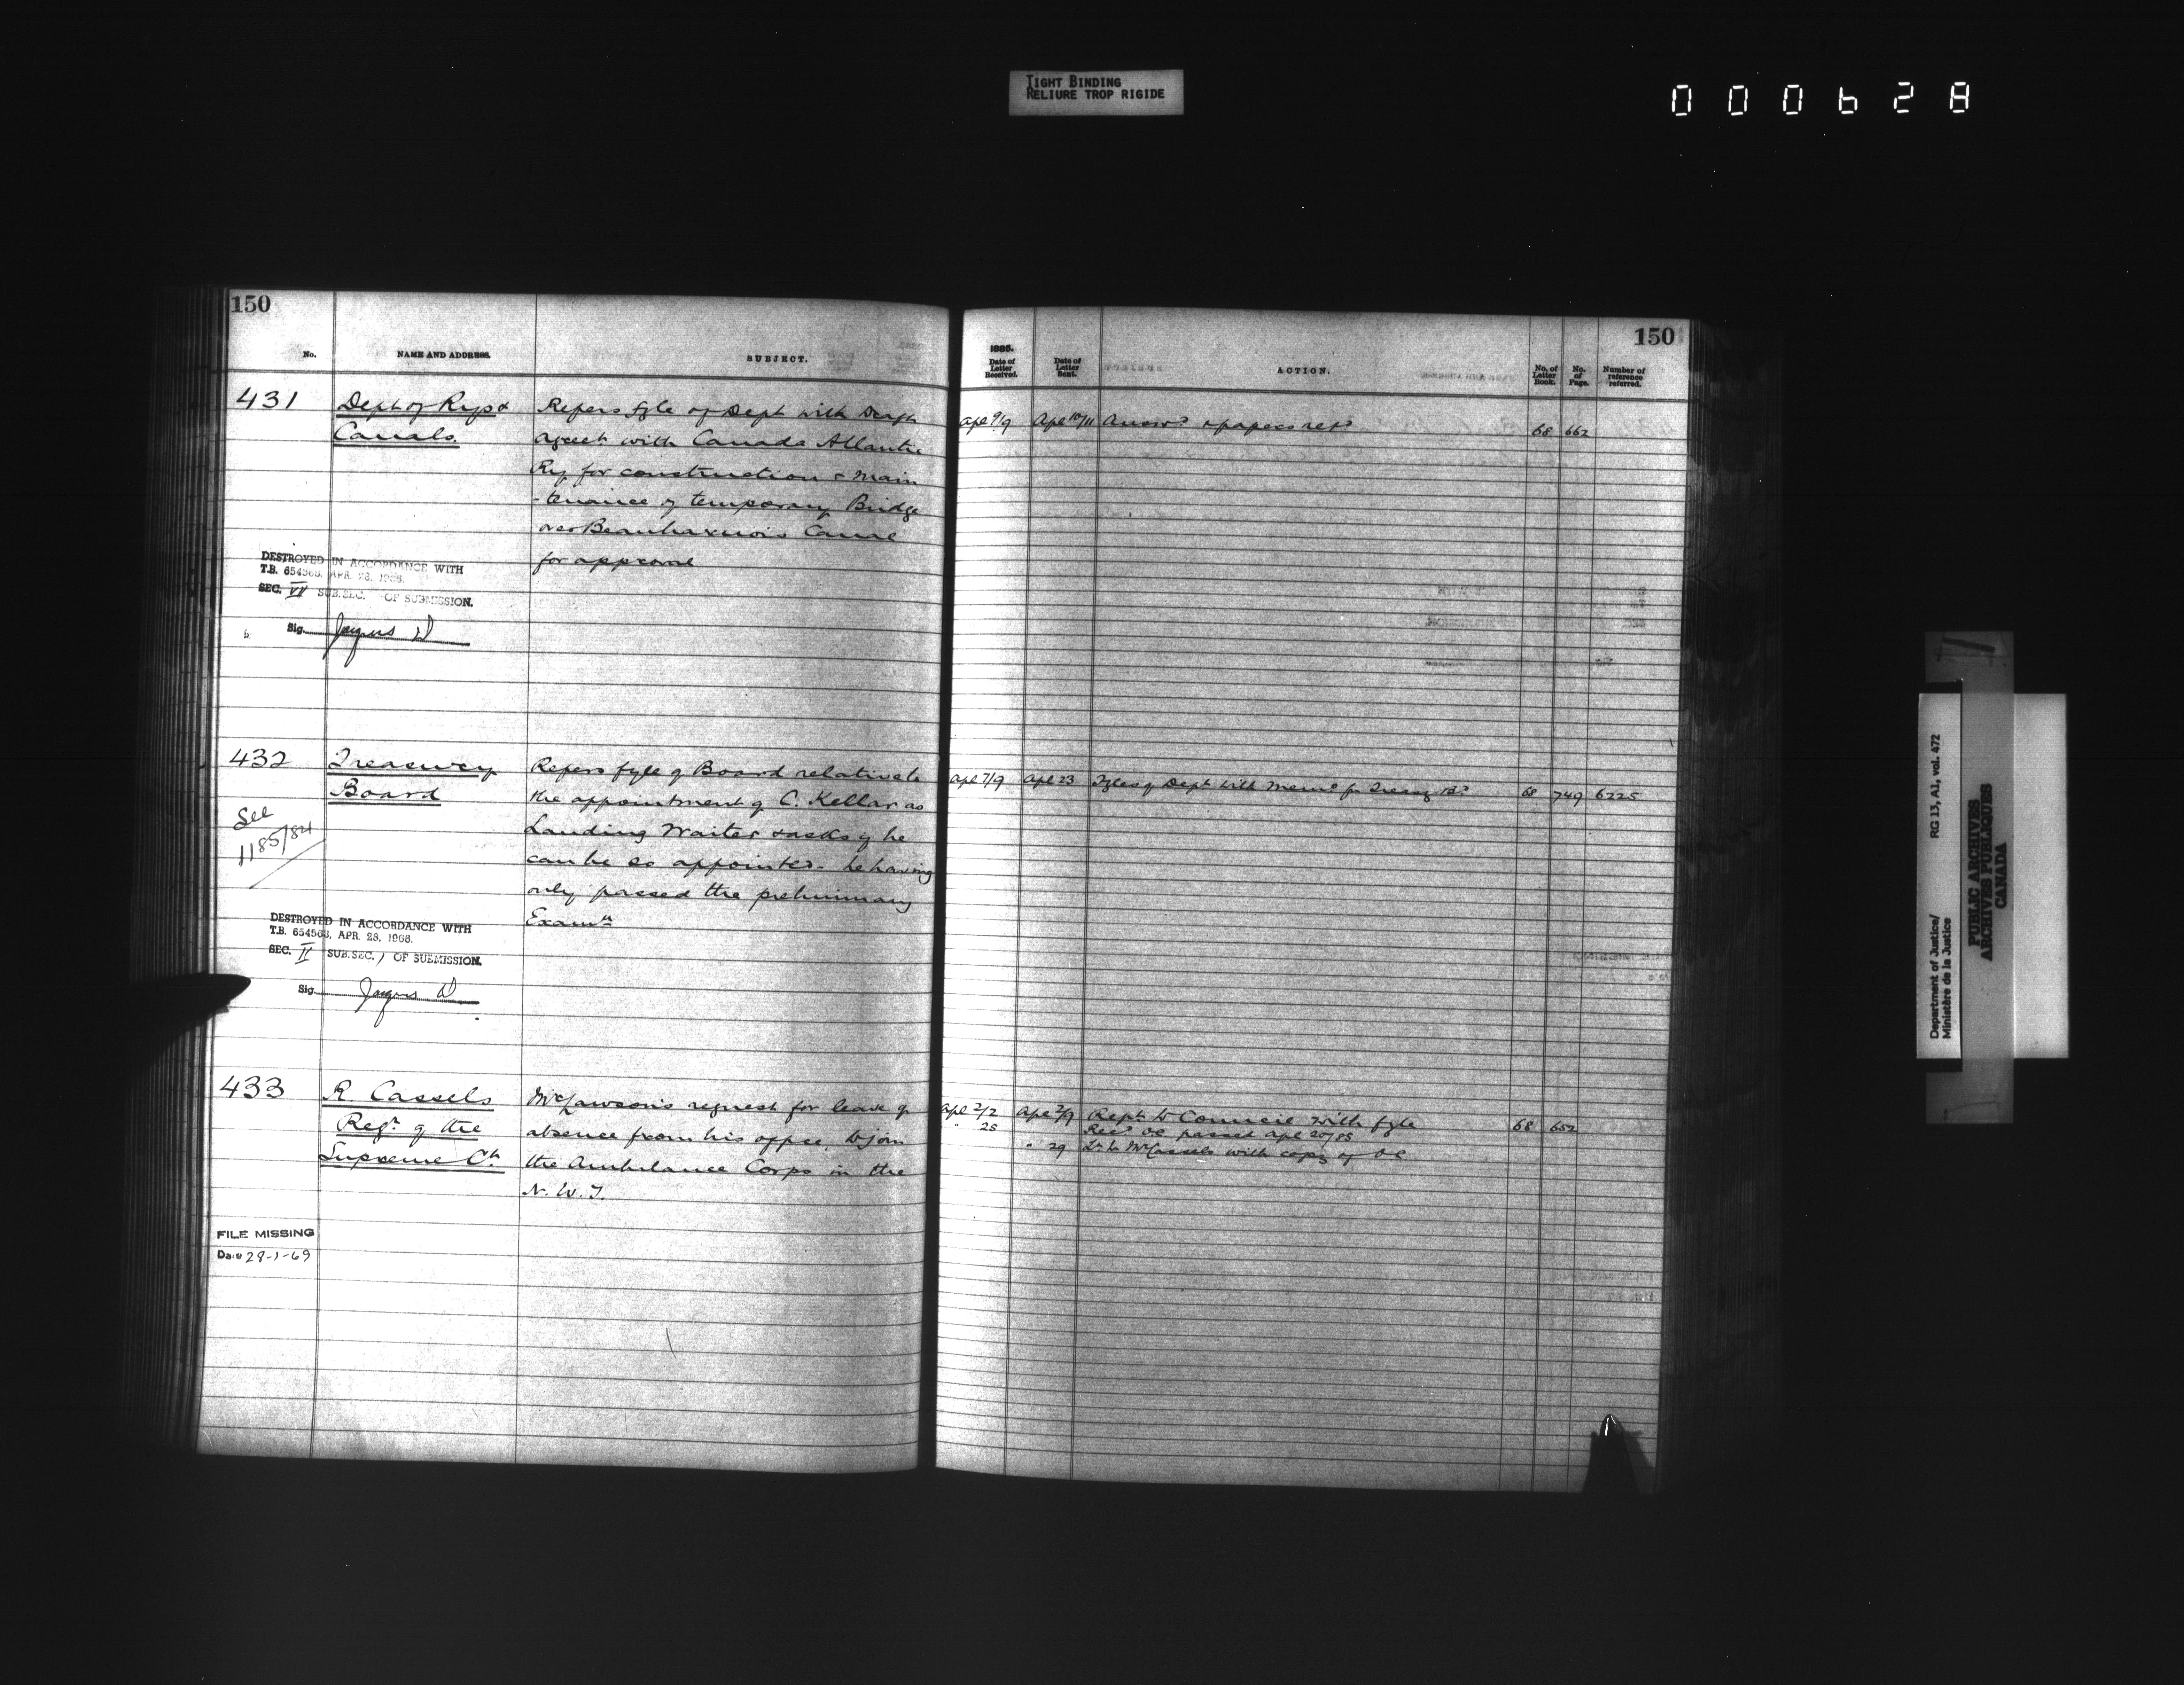 TIGHT BINDING
RELIURE TROP RIGIDE
000628
150
No.
NAME AND ADDRESS.
SUBJECT.
431
Dept of Rys &
Canals.
Refers fyle of Dept with Draft
agreet with Canada Atlantic
Ry for construction & main
-tenance of temporary Bridge
over Beauharnois Canal
for approval
DESTROYED IN ACCORDANCE WITH
T.B. 654568, APR. 28, 1966.
SEC. VI SUB.SEC. OF SUBMISSION.
Sig.
432
Treasury
Board
See
1185/84
Refers fyle of Board relative to
the appointment of C. Kellar as
Landing Waiter & asks if he
can be so appointed - he having
only passed the preliminary
Examn
DESTROYED IN ACCORDANCE WITH
T.B. 654568, APR. 28, 1966.
SEC. II SUB.SEC. 1 OF SUBMISSION.
Sig.
433
R. Cassels
Regr of the
Supreme Ct.
Mr Lawson's request for leave of
absence from his office, to join
the Ambulance Corps in the
N. W. T.
FILE MISSING
Date 28-1-69
150
1885.
Date of Letter Received.
Date of Letter Sent.
ACTION.
No. of Letter Book.
No. of Page.
Number of reference referred.
Apl 9/9 Apl 10/11 Answd & papers retd 68 662
Apl 7/9 Apl 23 Fyles of Dept with Memo for Treasy Bd 68 749 6225
Apl 2/2 Apl 2/9 Rept to Council with fyle 68 652
" 25 Recd OC passed Apl 20/85
" 29 Lr to Mr Cassels with copy of OC
Department of Justice/ RG 13, A1, vol. 472
Ministère de la Justice
PUBLIC ARCHIVES
ARCHIVES PUBLIQUES
CANADA